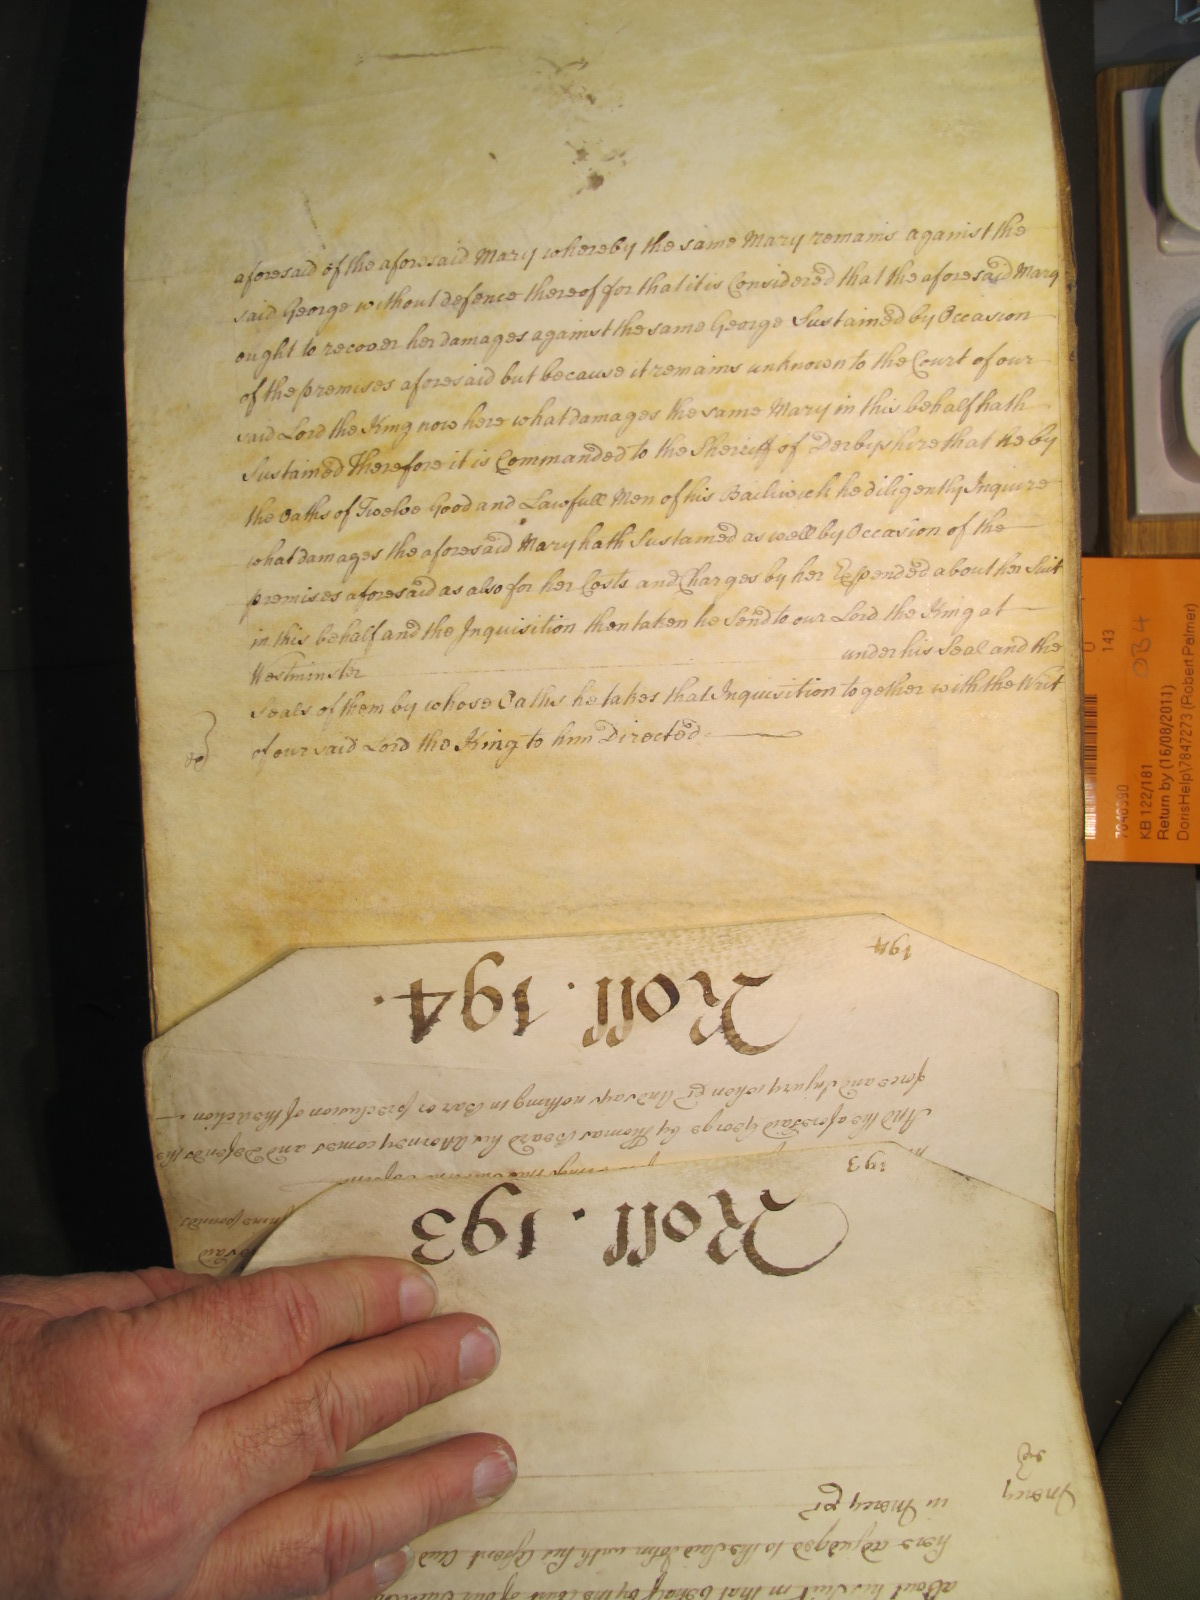 aforesaid of the aforesaid Mary whereby the same Mary remains against the
said George without defence thereof for that it is Considered that the aforesaid Mary
ought to recover her damages against the same George Sustained by Occasion
of the premises aforesaid but because it remains unknown to the Court of our
said Lord the King now here what damages the same Mary in this behalf hath
Sustained Therefore it is Commanded to the Sheriff of Derbyshire that he by
the Oaths of Twelve Good and Lawfull Men of his Bailiwick he diligently Inquire
what damages the aforesaid Mary hath Sustained as well by Occasion of the
premises aforesaid as also for her Costs and Charges by her Expended about her Suit
in this behalf and the Inquisition then taken he Send to our Lord the King at
Westminster under his Seal and the
seals of them by whose Oaths he takes that Inquisition together with the Writ
of our said Lord the King to him Directed
194
Roll. 194.
force and Injury when &c And says nothing in Bar or preclusion of the action
And the aforesaid George by Thomas Ward his Attorney comes and Defends the
193
Roll. 193
nine pounds
said
Mercy
in Mercy &c
here adjudged to the said John with his Assent And
about his Suit in that behalf by the Court of our
143
OB4
7840390
KB 122/181
Return by (16/08/2011)
DorisHelp\7847273 (Robert Palmer)